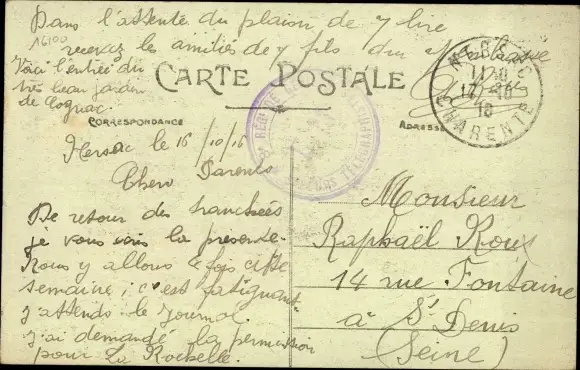 Dans l'attente du plaisir de vs lire
16100
recevez les amitiés de vs fils
Voici l'entrée du
très beau jardin
de Cognac
CARTE POSTALE
CORRESPONDANCE
ADRESSE
CHARENTE
Mersac le 16/10/16
Chers Parents
De retour des tranchées
je vous envoie la présente.
Nous y allons 4 fois cette
semaine; c'est fatiguant.
J'attends le journal.
J'ai demandé la permission
pour La Rochelle.
Monsieur
Raphaël Roux
14 rue Fontaine
à St Denis
(Seine)